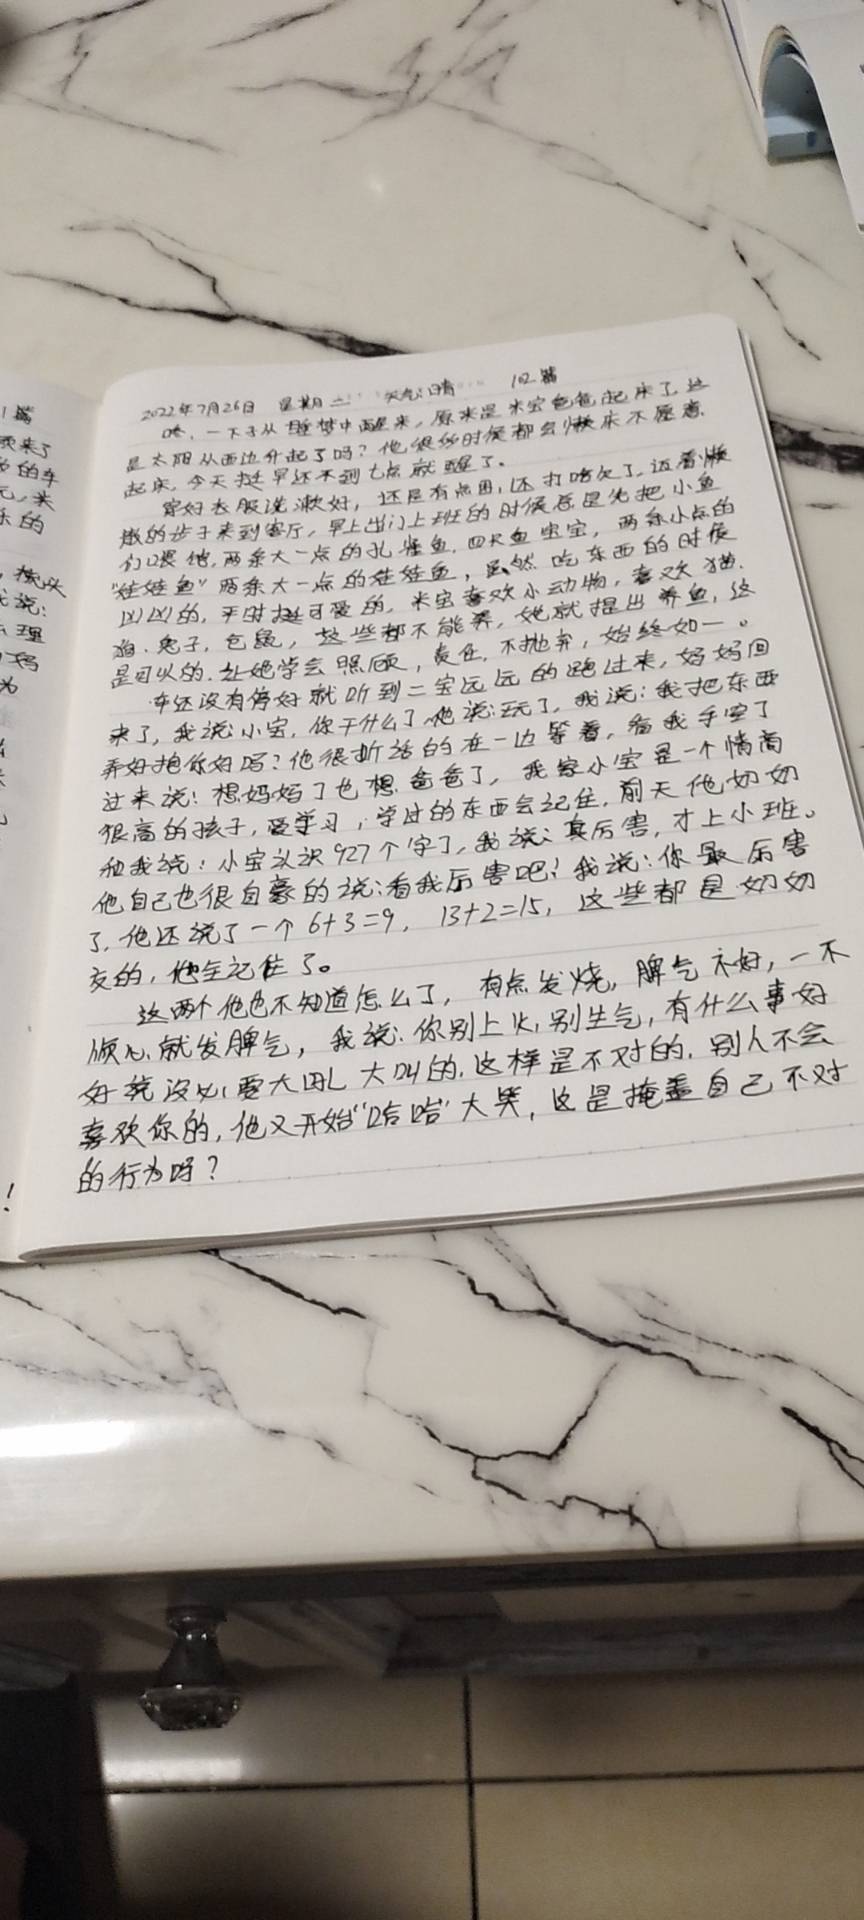 2022年7月26日 星期二 天气:晴 102篇
咚,一下子从睡梦中醒来,原来是米宝爸爸起床了,这
是太阳从西边升起了吗?他很多时候都会懒床不愿意
起床,今天挺早还不到七点就醒了。
穿好衣服洗漱好,还是有点困,还打哈欠了,迈着懒
散的步子来到客厅,早上出门上班的时候总是先把小鱼
们喂饱,两条大一点的孔雀鱼,四只鱼宝宝,两条小点的
"娃娃鱼"两条大一点的娃娃鱼,虽然吃东西的时候
凶凶的,平时挺可爱的,米宝喜欢小动物,喜欢猫、
狗、兔子、仓鼠,这些都不能养,她就提出养鱼,这
是可以的,让她学会照顾,责任,不抛弃,始终如一。
车还没有停好就听到二宝远远的跑过来,妈妈回
来了,我说:小宝,你干什么了,他说:玩了,我说:我把东西
弄好抱你好吗?他很听话的在一边等着,看我手空了
过来说:想妈妈了也想爸爸了,我家小宝是一个情商
很高的孩子,爱学习,学过的东西会记住,前天他奶奶
和我说:小宝认识927个字了,我说:真厉害,才上小班。
他自己也很自豪的说:看我厉害吧!我说:你最厉害
了,他还说了一个6+3=9,13+2=15,这些都是奶奶
交的,他全记住了。
这两个他也不知道怎么了,有点发烧,脾气不好,一不
顺心就发脾气,我说:你别上火,别生气,有什么事好
好说没必要大吼大叫的,这样是不对的,别人不会
喜欢你的,他又开始"哈哈"大笑,这是掩盖自己不对
的行为呀?
1篇
来了
的车
元,米
乐的
说:
理
妈
为
!